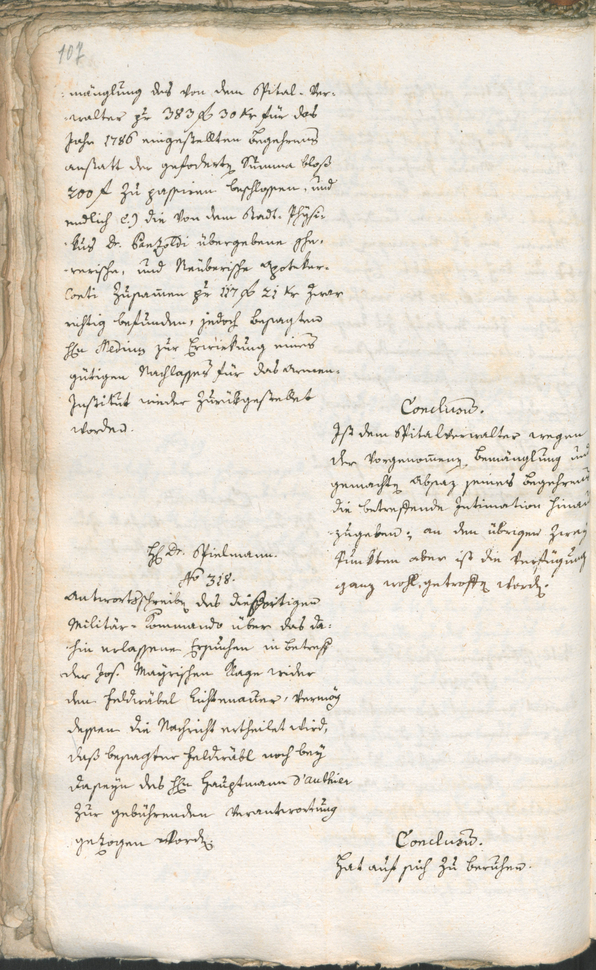 107
mänglung des von dem Spital-Ver-
walter pr 383 f 30 Kr für das
Jahr 1786 eingestellten Begehrens
anstatt der geforderten Summa bloß
200 f zu passiren beschlossen, und
endlich c.) die von dem Stadt-Physi-
kus Dr.
übergebene
rerische, und Neüberische Apoteker-
Conti zusamen pr 117 f 21 Kr zwar
richtig befunden, jedoch besagten
zur Erwirkung eines
gütigen Nachlasses für das Armen-
Institut wieder zurükgestellet
worden.
Conclusum.
Ist dem Spitalverwalter wegen
der vorgenomenen Bemänglung und
gemachten Absaz seines Begehrens
die betreffende Intimation hinaus
zugeben; an den übrigen zwey
Punkten aber ist die Verfügung
ganz wohl getroffen worden.
H. Dr. Spielmann.
No 318.
Antwortsschreiben des dießortigen
Militär-Kommando über das da-
hin erlassene Ersuchen in betreff
der Jos. Mayrischen Klage wider
den Feldwäbel Lichtenauer, vermög
dessen die Nachricht ertheilet wird,
daß besagter Feldwäbl noch bey
daseyn des Hn Hauptmann d'Authier
zur gebührenden Verantwortung
gezogen worden.
Conclusum.
Hat auf sich zu beruhen.